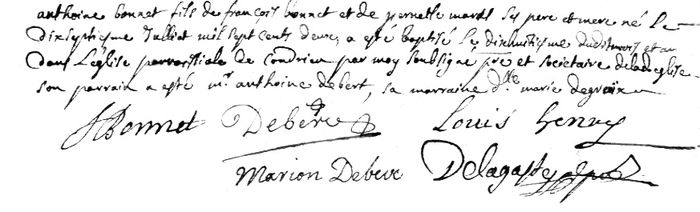 anthoine bonnet fils de françois bonnet et de pernette mares ses pere et mere né le
dixseptiesme Juillet mil sept cents deux, a esté baptisé le dixhuitiesme dud mois et an
dans L'eglise parroissiale de condrieu par moy soubsigné pre et societaire de lad eglise
son parrain a esté mr anthoine debert, sa marraine dlle marie
JBonnet Debere Louis henry
Marion Debere Delagaste